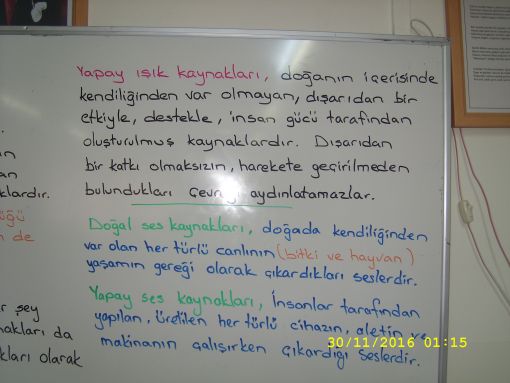 Yapay ışık kaynakları, doğanın içerisinde
kendiliğinden var olmayan, dışarıdan bir
etkiyle, destekle, insan gücü tarafından
oluşturulmuş kaynaklardır. Dışarıdan
bir katkı olmaksızın, harekete geçirilmeden
bulundukları çevreyi aydınlatamazlar.
Doğal ses kaynakları, doğada kendiliğinden
var olan her türlü canlının (bitki ve hayvan)
yaşamın gereği olarak çıkardıkları seslerdir.
Yapay ses kaynakları, İnsanlar tarafından
yapılan, üretilen her türlü cihazın, aletin ve
makinanın çalışırken çıkardığı seslerdir.
n de
r şey
nakları da
kları olarak
30/11/2016 01:15